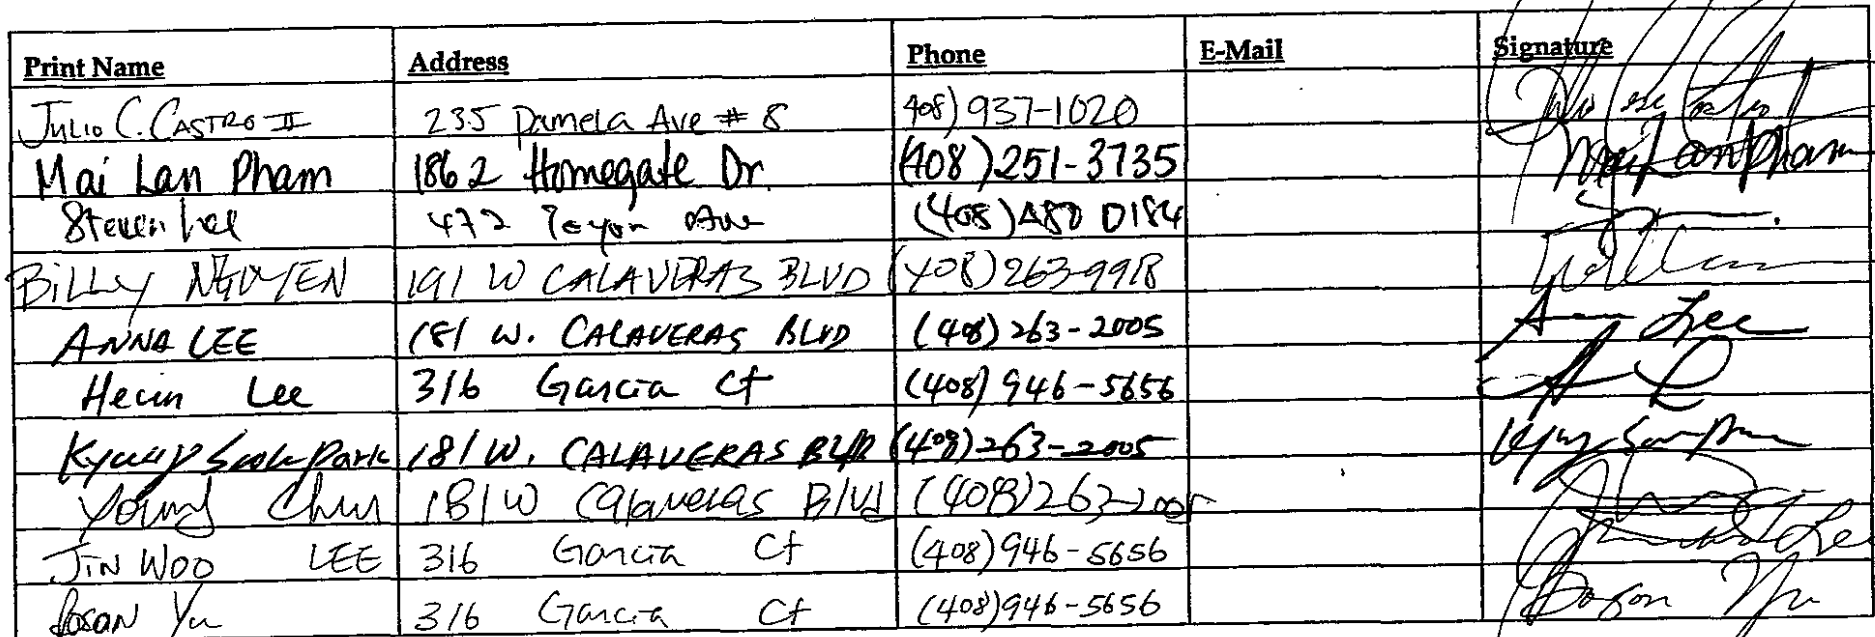 Print Name Address Phone E-Mail Signature
JULIO C. CASTRO II 235 Pamela Ave # 8 408) 937-1020
Mai Lan Pham 1862 Homegate Dr. (408) 251-3735 Mai Lan Pham
Steven Lee 472 Ave (408) 480 0184
BILLY NGUYEN 191 W CALAVERAS BLVD (408) 263-9918
ANNA LEE 181 W. CALAVERAS BLVD (408) 263-2005 Lee
Lee 316 Garcia Ct (408) 946-5656
Park 181 W. CALAVERAS BLVD (408) 263-2005
Young Chun 181 W Calaveras Blvd (408) 263-2005
JIN WOO LEE 316 Garcia Ct (408) 946-5656 Lee
Yu 316 Garcia Ct (408) 946-5656 Yu